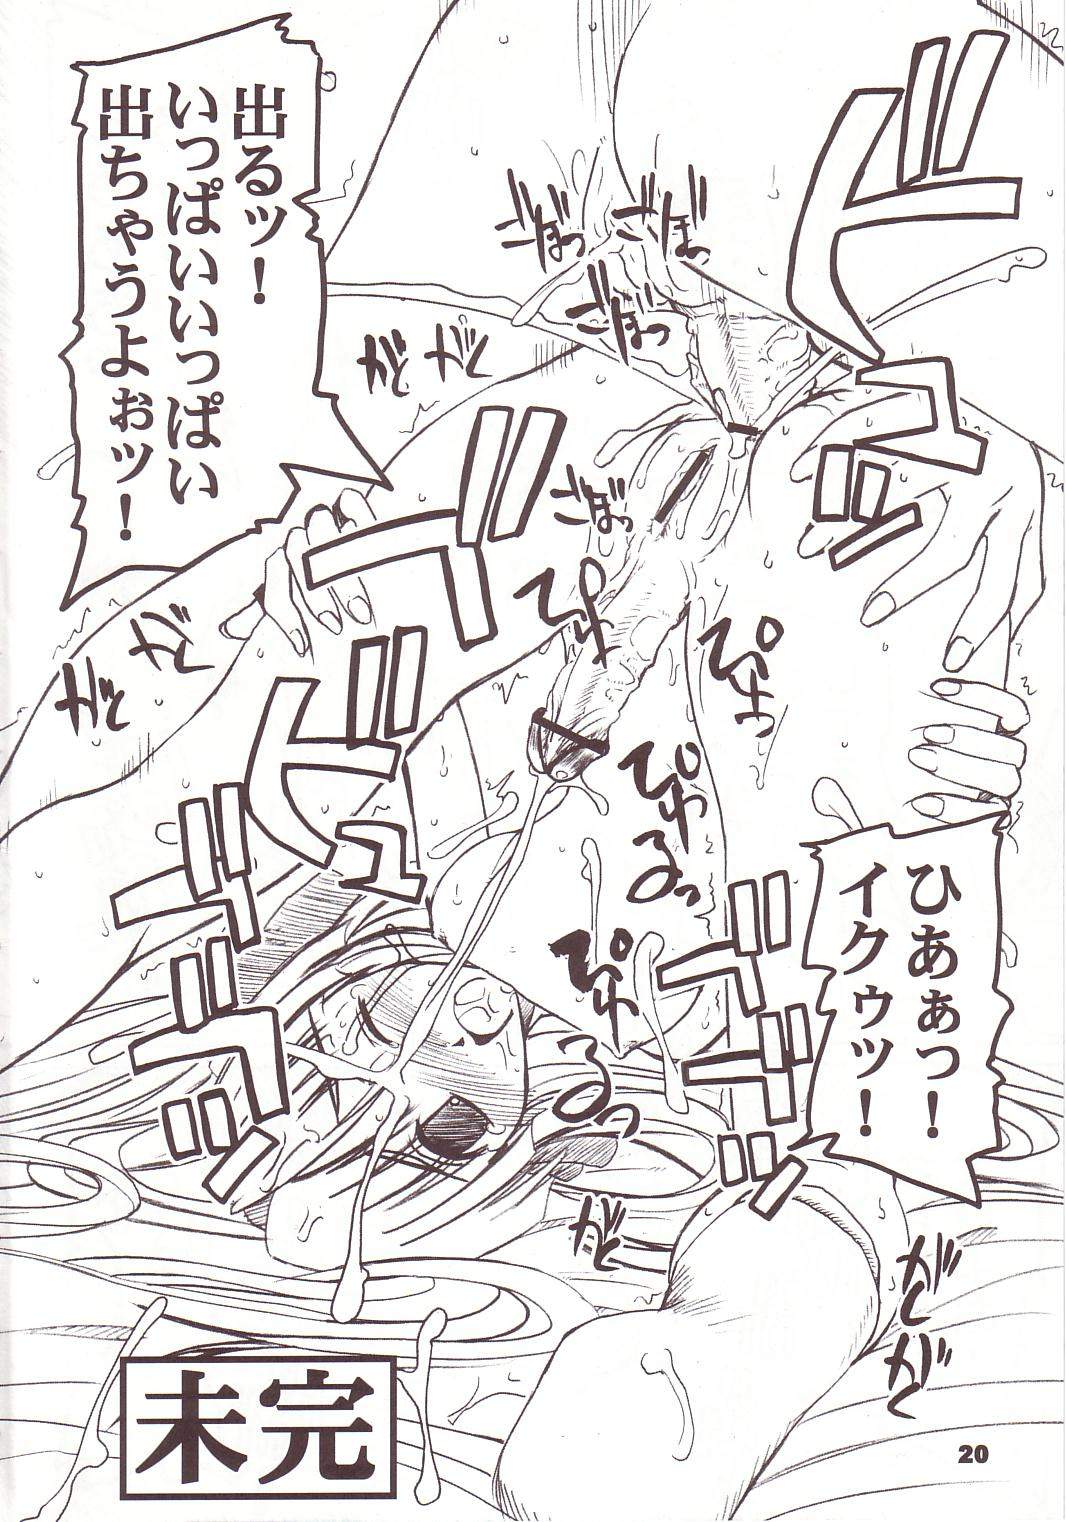 ビュッ
ごぼっ
ごぼっ
ごぼっ
がく
がく
出るッ!
いっぱいいっぱい
出ちゃうよぉッ!
ごぼっ
ぴゅ
ぴゅっ
がく
がく
ぴゅるっ
ひあぁっ!
イクゥッ!
ぴゅ
るっ
がく
がく
がく
未完
20